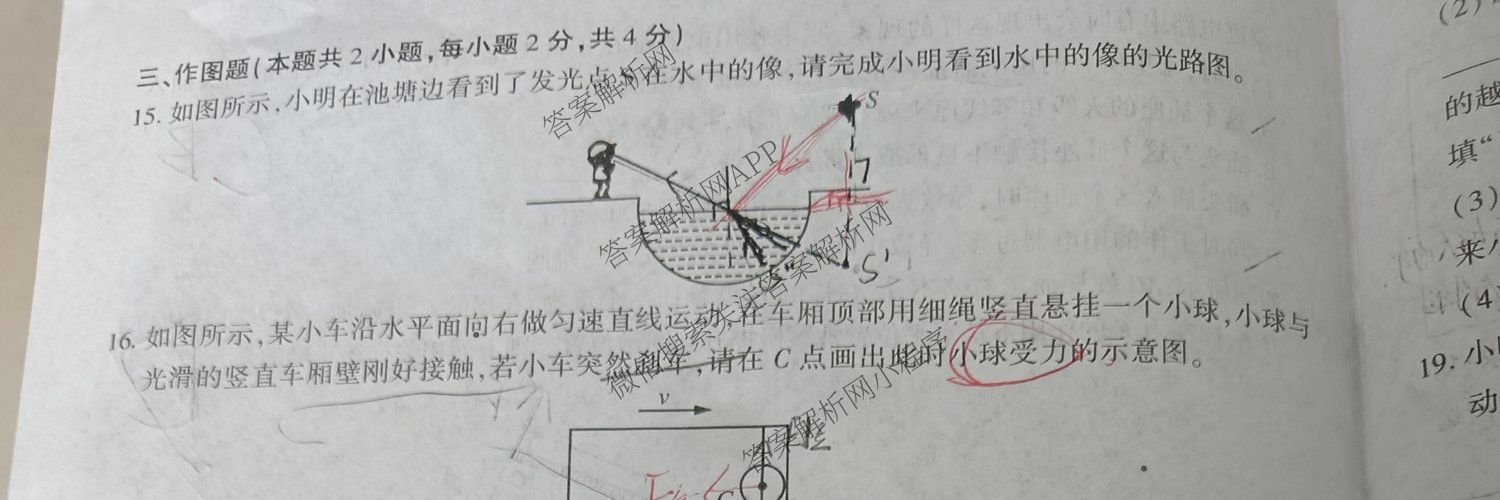 三、作图题(本题共2小题,每小题2分,共4分)
15. 如图所示,小明在池塘边看到了发光点S在水中的像,请完成小明看到水中的像的光路图。
S
S'
16. 如图所示,某小车沿水平面向右做匀速直线运动,在车厢顶部用细绳竖直悬挂一个小球,小球与
光滑的竖直车厢壁刚好接触,若小车突然刹车,请在C点画出此时小球受力的示意图。
v
C
(2)
的越
填“
(3)
来
(4
19. 小
动
答案解析网
答案解析网APP
答案解析网
微信搜索关注答案解析网
答案解析网小程序